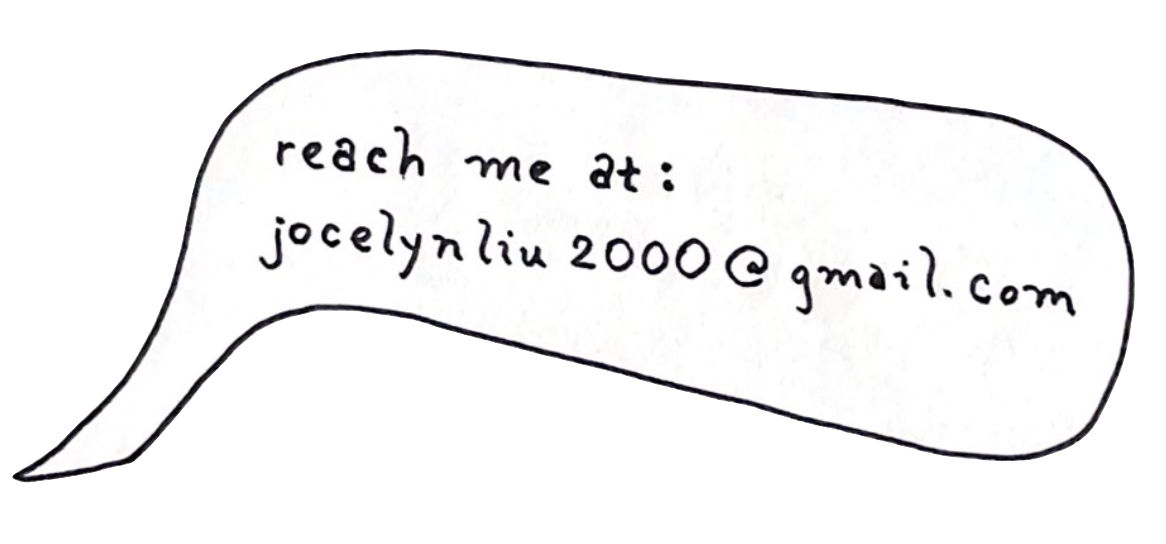 reach me at:
jocelynliu2000@gmail.com